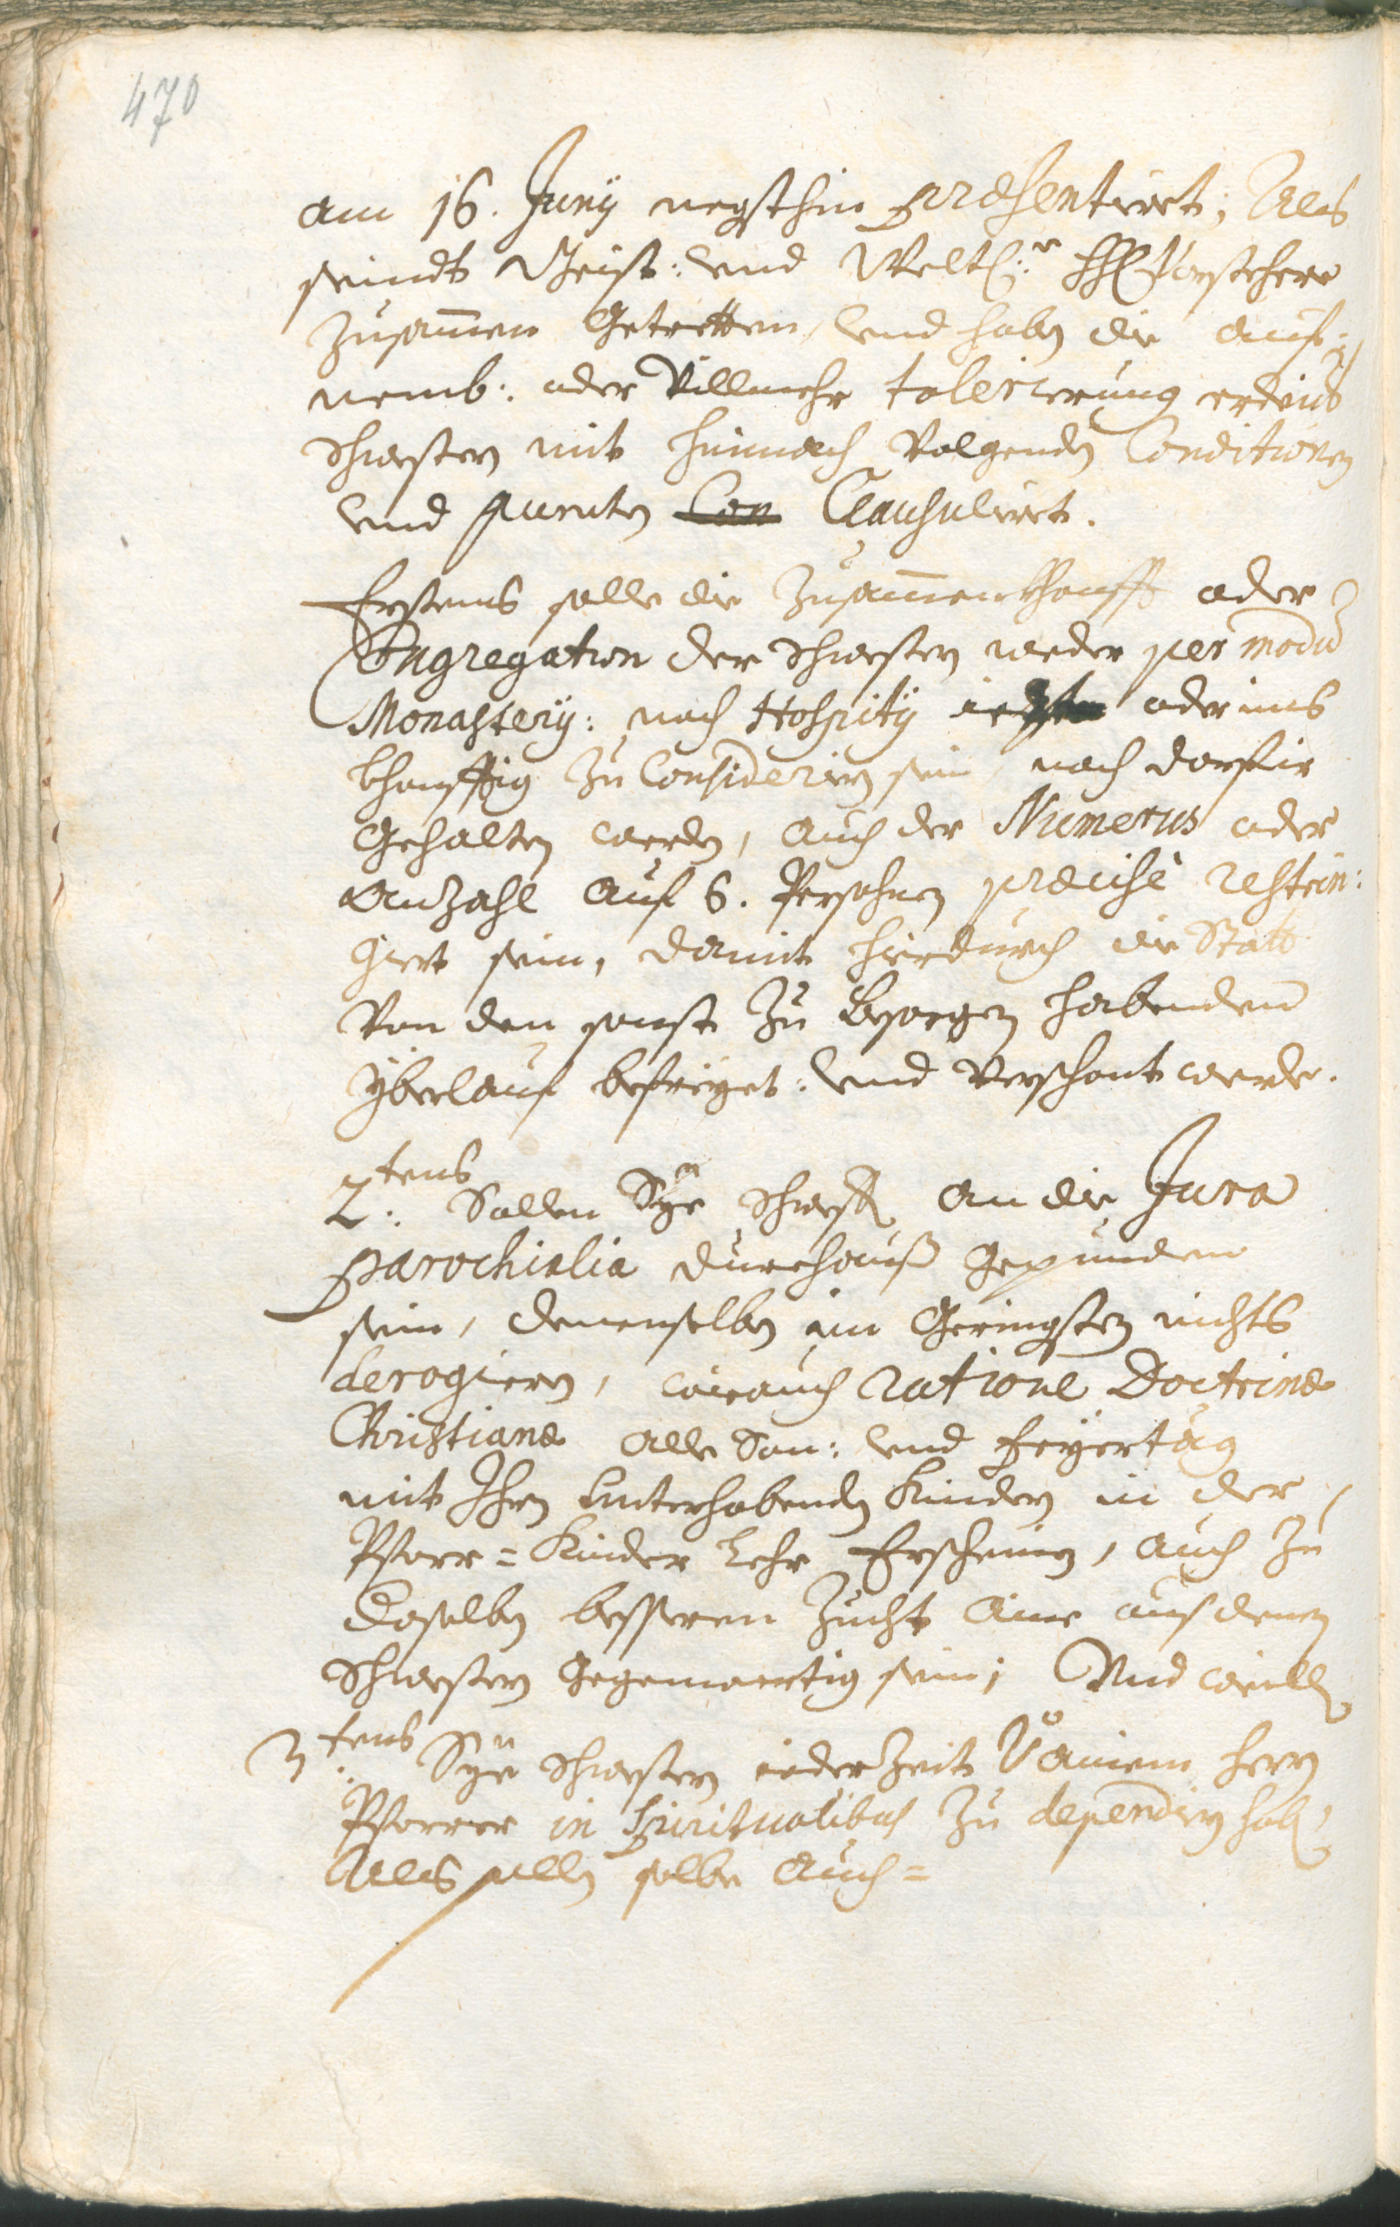 470
am 16. Junÿ negsthin præsentiert; Als
seindt Geist: und Weltl: HH Vorsteher
zusamen Getretten, und haben die auf-
nemb: oder Villmehr tolerierung
Schwestern mit hienach Volgenden Conditionen
und puncten Con Clausuliert.
Erstens solle die Zusamenkhonfft oder
Congregation der Schwestern weder per modũ
Monasterÿ: noch Hospitÿ oder ins
khonfftig zu Considerieren sein, noch darfür
Gehalten werden, auch der Numerus oder
Anzahl auf 6. Persohnen præcisè restrin:
giert sein, damit hierdurch die Statt
Von den sonst zu besorgen habenden
Yberlauf befreÿet: und Verschont werde.
2.tens Sollen Sÿe Schwest: an die Jura
parochialia durchauß gepunden
sein, denenselben im Geringsten nichts
derogieren, wie auch ratione Doctrinæ
Christianæ alle Son: und Feÿertäg
mit Ihren Unterhabenden Kindern in der
Pfarr=Kinder Lehr Erscheinen, auch zu
daselben besseren Zucht Aine auf denen
Schwestern Gegenwertig sein; Und weillen
3.tens Sÿe Schwestern ieder Zeit Von ainem Herrn
Pfarrer in Spiritualibus zu dependieren haben,
Als sollen selbe auch=